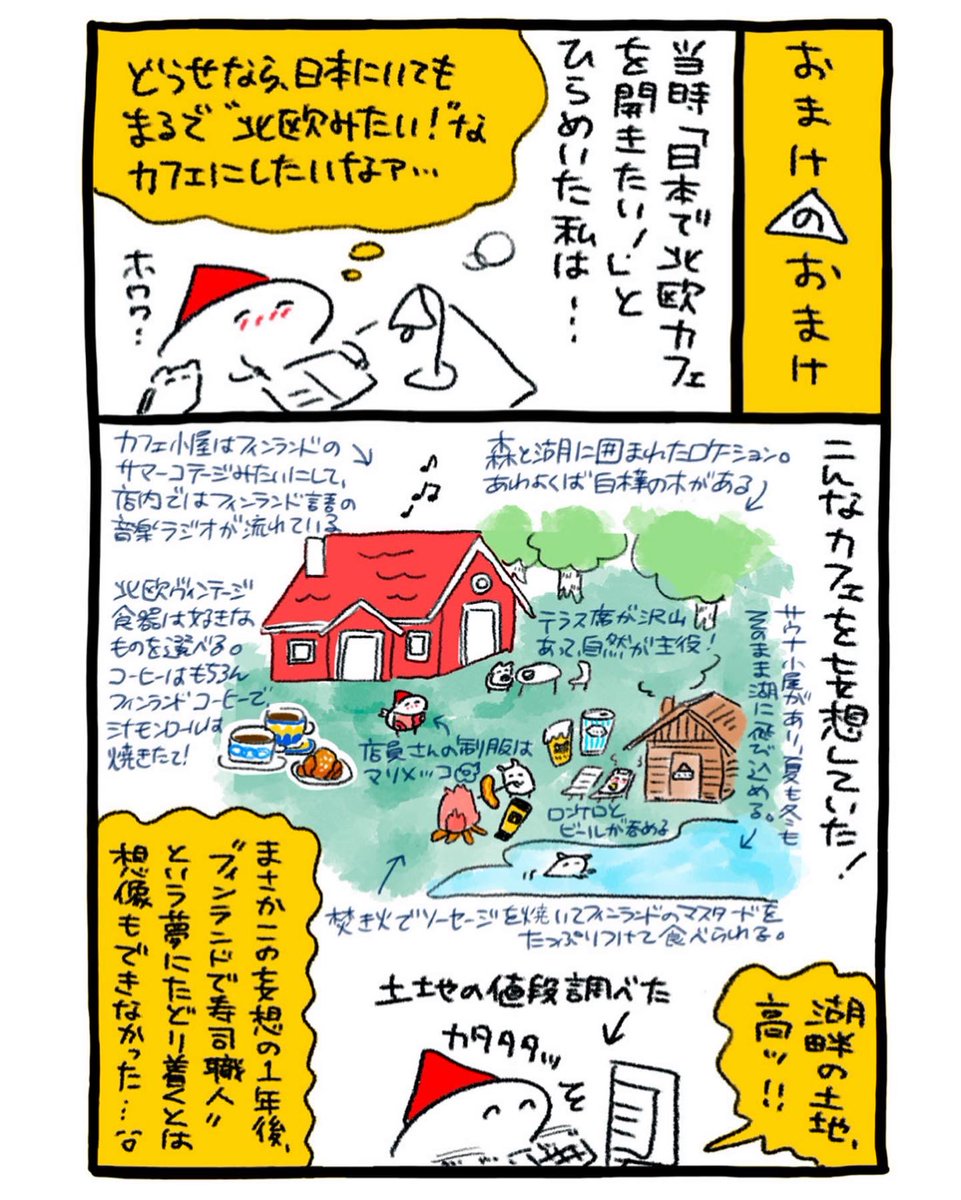 おまけのおまけ
当時「日本で北欧カフェ
を開きたい！」と
ひらめいた私は…
どうせなら、日本にいても
まるで“北欧みたい！”な
カフェにしたいなァ…
ホワワ…
こんなカフェを妄想していた！
カフェ小屋はフィンランドの
サマーコテージみたいにして、
店内ではフィンランド語の
音楽ラジオが流れている
森と湖に囲まれたロケーション。
あわよくば白樺の木がある
北欧ヴィンテージ
食器は好きな
ものを選べる。
コーヒーはもちろん
フィンランドコーヒーで、
シナモンロールは
焼きたて！
テラス席が沢山
あって、自然が主役！
サウナ小屋があり、夏も冬も
そのまま湖に飛び込める。
店員さんの制服は
マリメッコ
ロンケロと
ビールが呑める
焚き火でソーセージを焼いてフィンランドのマスタードを
たっぷりつけて食べられる。
湖畔の土地、
高ッ!!
土地の値段調べた
カタタタッ
まさかこの妄想の1年後、
“フィンランドで寿司職人”
という夢にたどり着くとは
想像もできなかった…